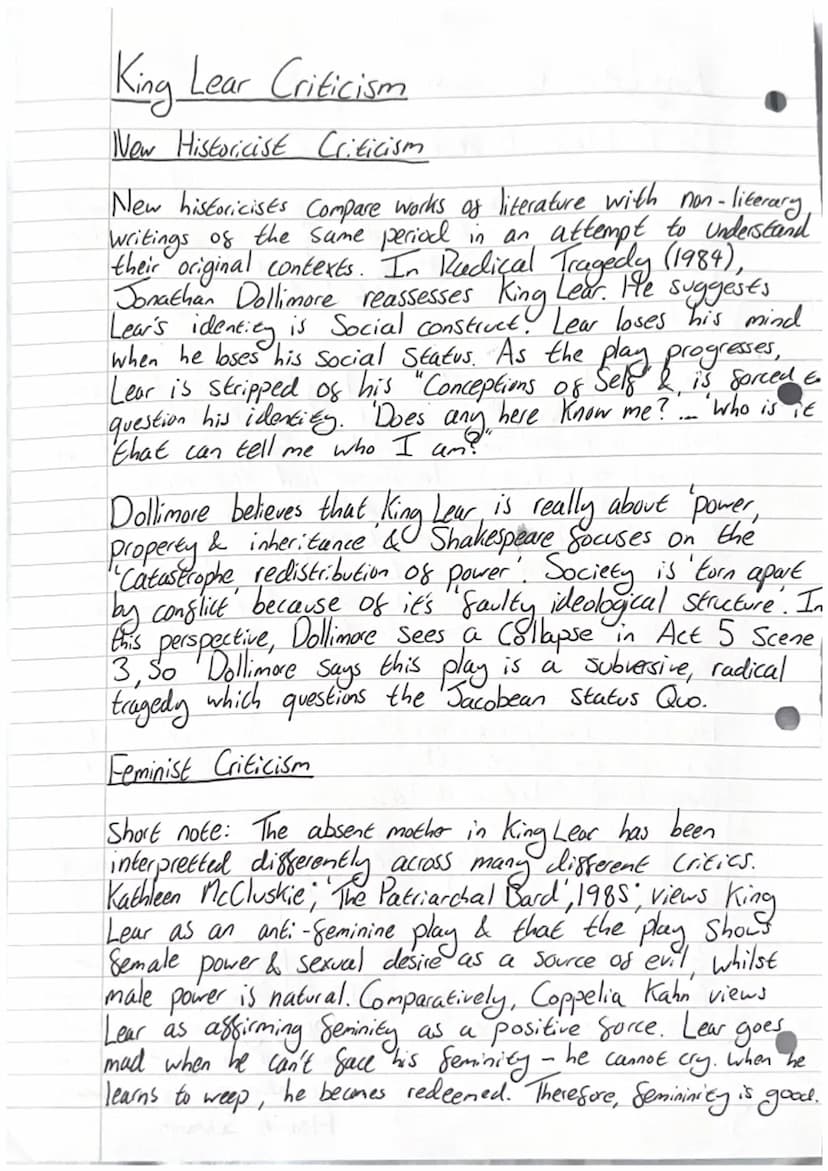 King Lear Criticism
New Historicist Criticism
New historicists compare works of literature with non-literary
writings of the same period in an attempt to understand
their original contexts. In Radical Tragedy (1984),
Jonathan Dollimore reassesses King Lear. He suggests
Lear's identity is Social construct. Lear loses his mind
when he loses his Social Status. As the play progresses,
Lear is stripped of his "Conceptions of Self" & is forced to
question his identity. 'Does any here know me? ... 'Who is it
that can tell me who I am?"
Dollimore believes that King Lear is really about 'power,
property & inheritance' & Shakespeare focuses on the
'Catastrophe redistribution of power'. Society is 'torn apart
by conflict' because of it's 'faulty ideological structure'. In
this perspective, Dollimore sees a Collapse in Act 5 Scene
3, So Dollimore says this play is a subversive, radical
tragedy which questions the Jacobean Status Quo.
Feminist Criticism
Short note: The absent mother in King Lear has been
interpretted differently across many different critics.
Kathleen McCluskie; 'The Patriarchal Bard', 1985; views King
Lear as an anti-feminine play & that the play shows
female power & sexual desire as a source of evil, whilst
male power is natural. Comparatively, Coppelia Kahn views
Lear as affirming feminity as a positive force. Lear goes
mad when he can't face his feminity - he cannot cry. When he
learns to weep, he becomes redeemed. Therefore, femininity is good.